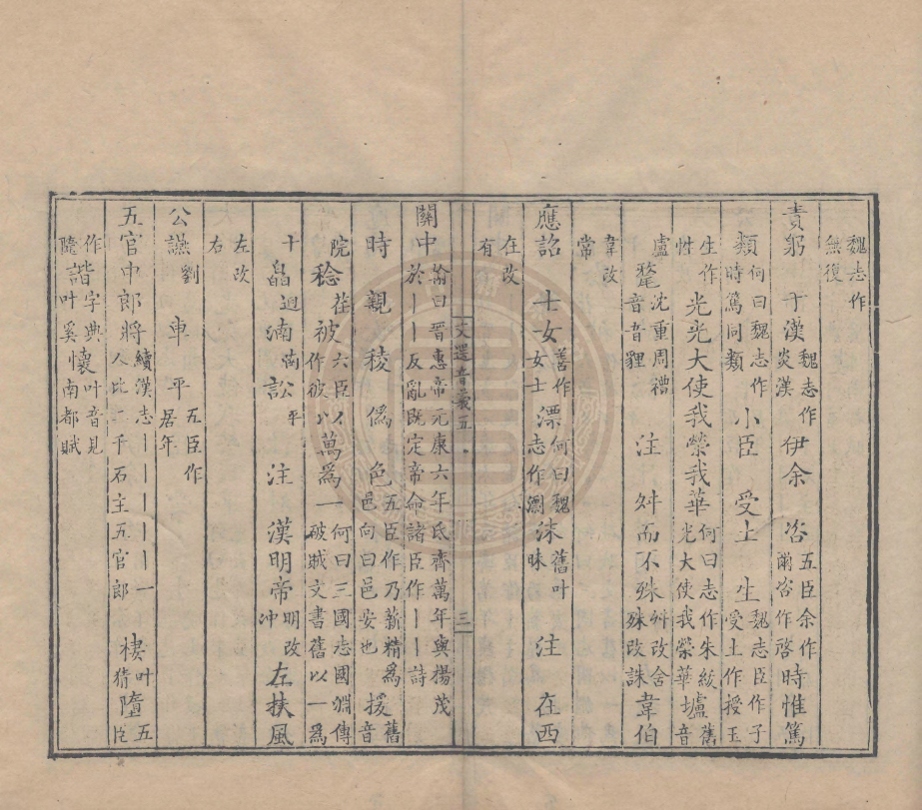 魏志作無復
責躬　于漢魏志作炎漢伊余　咨五臣余作爾咨作啓時惟篤
類何曰魏志作時篤同類小臣　受土　生魏志臣作子受土作授玉
生作性光光大使我榮我華何曰志作朱紱光大使我榮華壚舊音
盧氂沈重周禮音音貍注　舛而不殊舛改舍殊改誅韋伯
韋改常
應詔　士女善作女士漂何曰魏志作瀾沫舊叶昧注　在西
在改有
文選音義五　三
關中瀚曰晋惠帝元康六年氐齊萬年與揚茂於｜｜反亂既定帝命諸臣作｜｜詩
時　親　稜　爲　色五臣作乃薪精爲邑向曰邑安也援舊音
院稔荏被六臣以作彼以萬爲一何曰三國志國淵傳破賊文書舊以一爲
十皛迴湳莮訟平注　漢明帝明改冲左扶風
左改右
公讌劉　車　平五臣作居年
五官中郎將續漢志｜｜｜｜｜一人比二千石主五官郎棲叶猜隮五臣
作隮諧字典叶音見叶奚懷南都賦